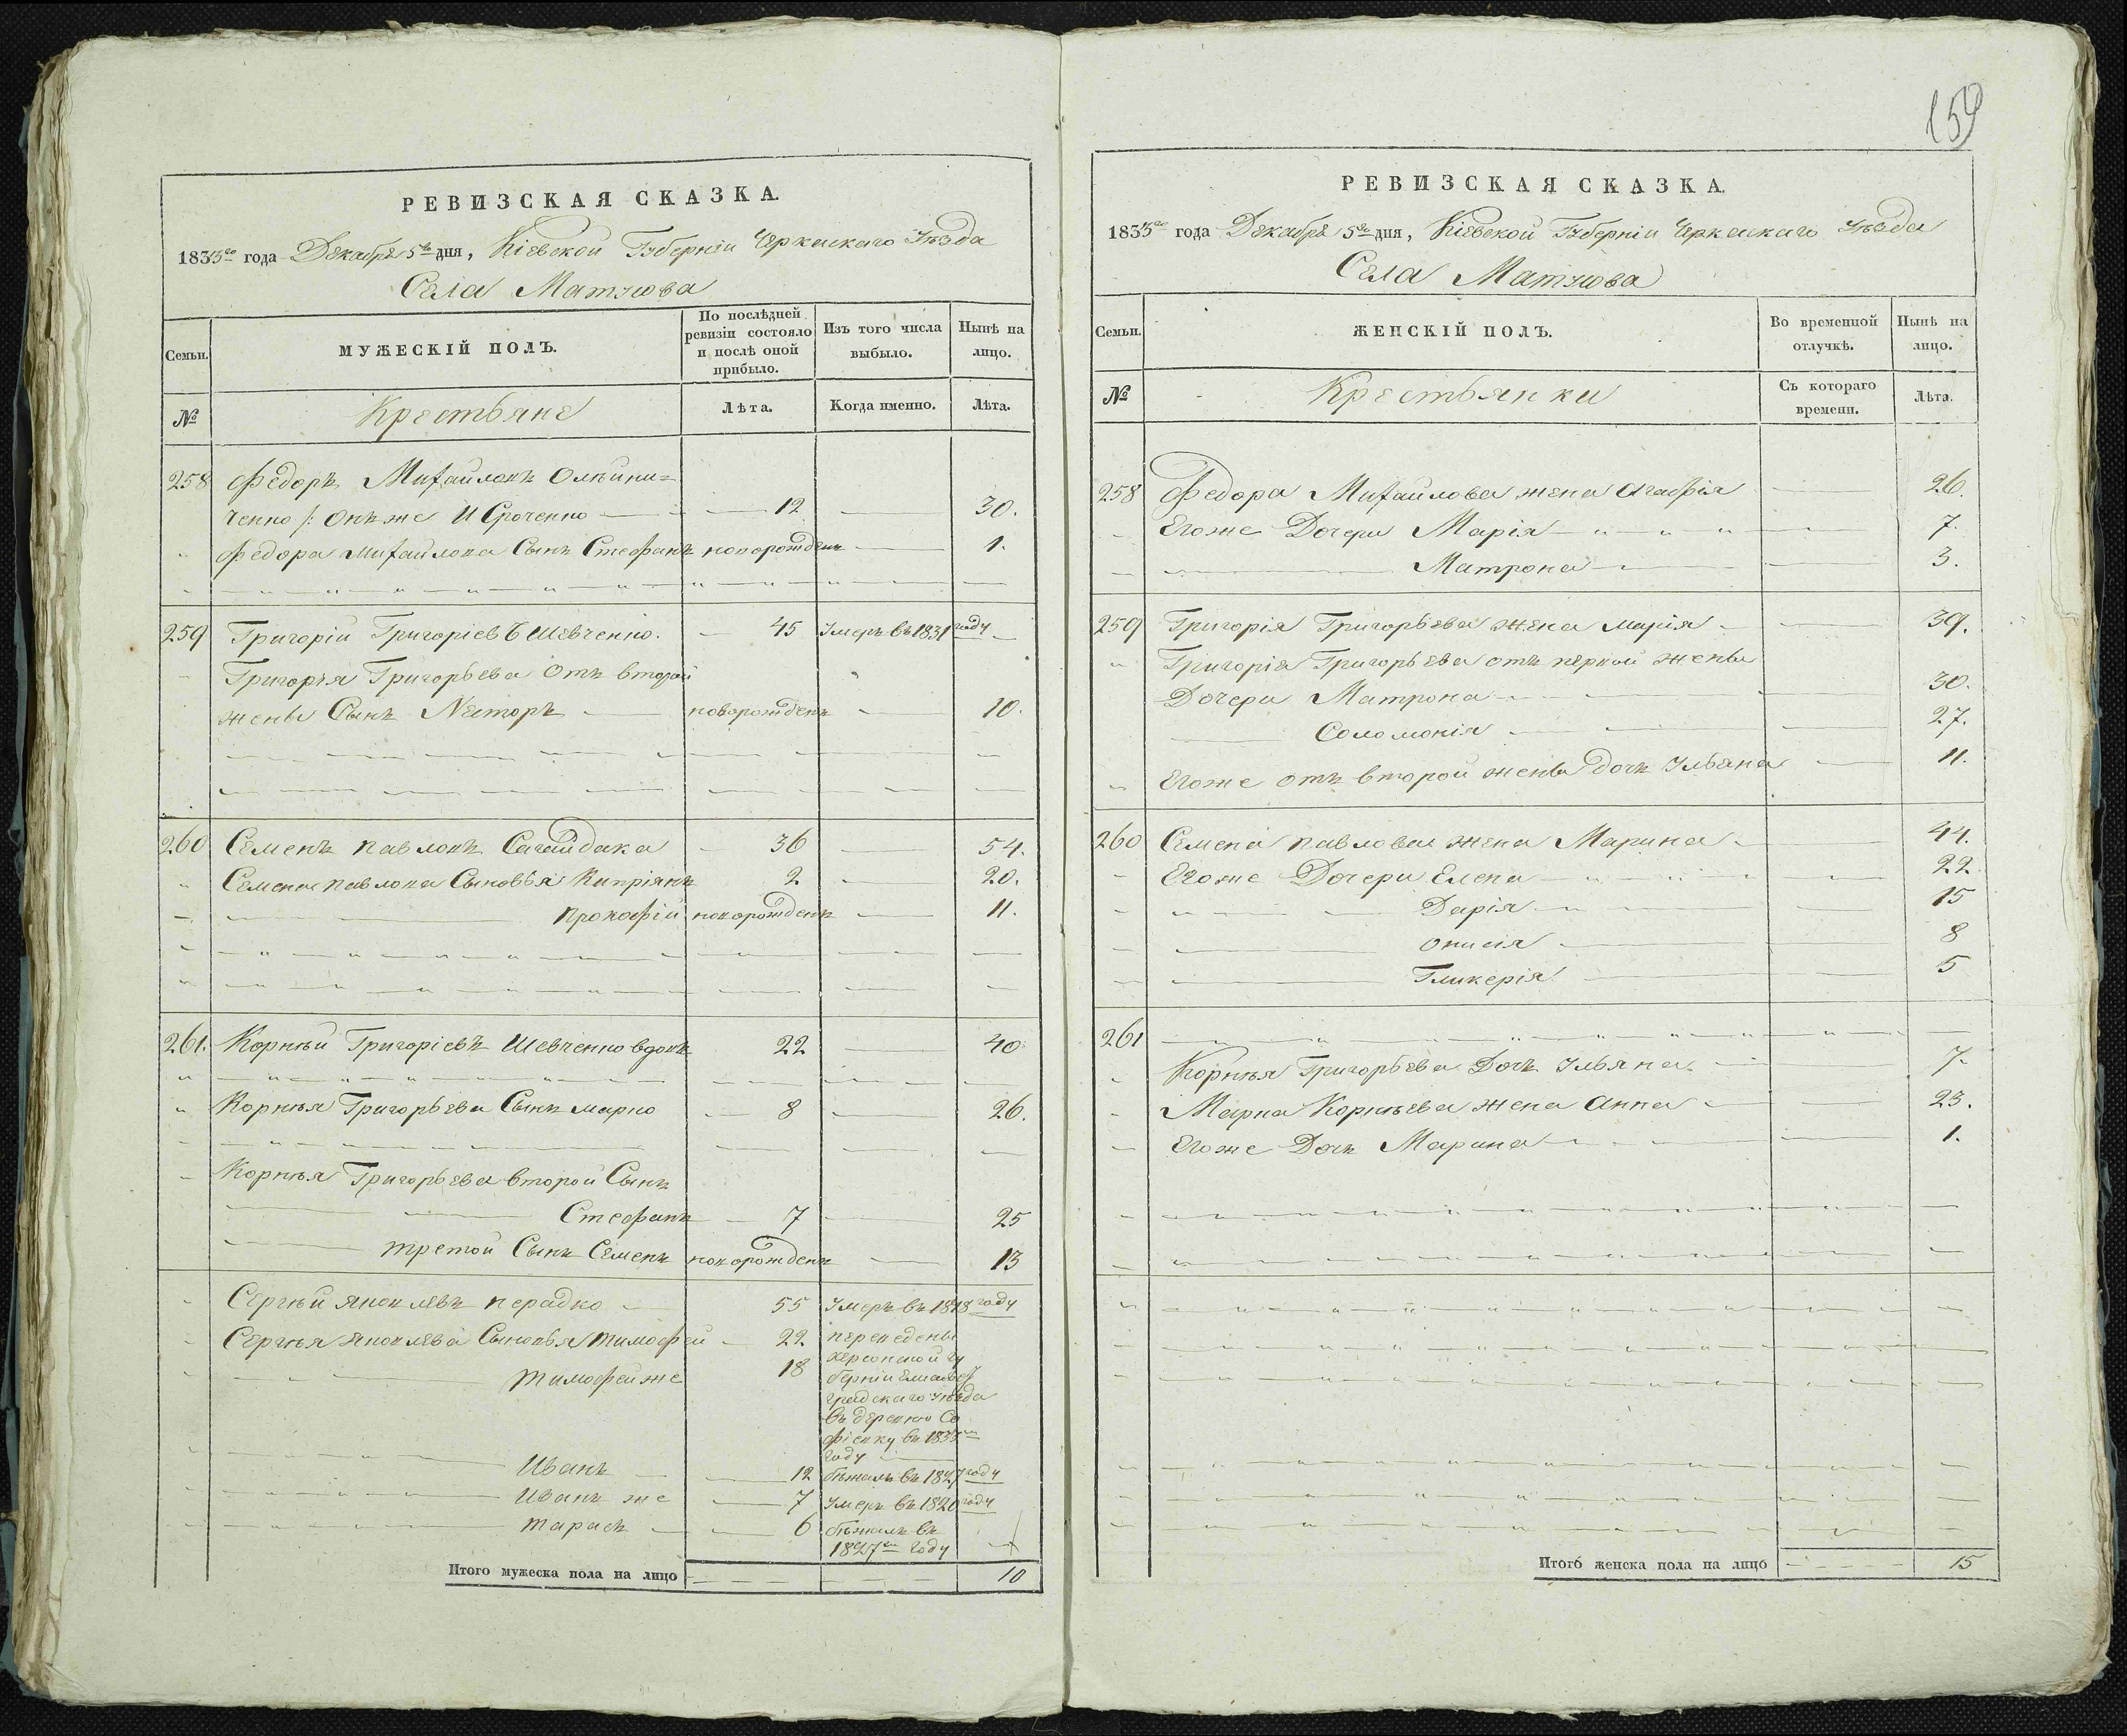 РЕВИЗСКАЯ СКАЗКА.
1835го года Декабря 5го дня, Кіевской Губерніи Черкаскаго Уѣзда
Села Матусова
Семьи.
МУЖЕСКІЙ ПОЛЪ.
По послѣдней ревизіи состояло и послѣ оной прибыло.
Изъ того числа выбыло.
Нынѣ на лицо.
№
Крестьяне
Лѣта.
Когда именно.
Лѣта.
258 Федоръ Михайловъ Олѣйни=
ченко /: Онъ же И Сроченко 12 30.
Федора Михайлова Сынъ Стефанъ новорожденъ 1.
259 Григорій Григоріевъ Шевченко. 45 Умеръ въ 1831 году
Григорія Григорьева Отъ второй
жены Сынъ Несторъ новорожденъ 10.
260 Семенъ Павловъ Сагайдака 36 54.
Семена Павлова Сыновья Кипріянъ 2 20.
Прокофій новорожденъ 11.
261. Корнѣй Григоріевъ Шевченко вдовъ 22 40
Корнѣя Григорьева Сынъ Марко 8 26.
Корнѣя Григорьева второй Сынъ
Стефанъ 7 25
третой Сынъ Семенъ новорожденъ 13
Сергѣй Яковлевъ Перадко 55 Умеръ въ 1818 году
Сергѣя Яковлева Сыновья Тимофей 22 переведены
Херсонской Гу
Тимофей же 18 берніи Елисавет
градскаго Уѣзда
въ деревню Со
фіевку въ 1833м
году
Иванъ 12 бѣжалъ въ 1827 году
Иванъ же 7 Умеръ въ 1820 году
Тарасъ 6 бѣжалъ въ
1827м году
Итого мужеска пола на лицо 10
159
РЕВИЗСКАЯ СКАЗКА.
1835го года Декабря 5го дня, Кіевской Губерніи Черкаскаго Уѣзда
Села Матусова
Семьи.
ЖЕНСКІЙ ПОЛЪ.
Во временной отлучкѣ.
Нынѣ на лицо.
№
Крестьянки
Съ котораго времени.
Лѣта.
258 Федора Михайлова жена Агафія 26.
Егоже Дочери Марія 7.
Матрона 3.
259 Григорія Григорьева жена Марія 39.
Григорія Григорьева отъ первой жены
Дочери Матрона 30.
Соломонія 27.
Егоже отъ второй жены дочь Ульяна 11.
260 Семена Павлова жена Марина 44.
Егоже Дочери Елена 22
Дарія 15
Онисія 8
Гликерія 5
261
Корнѣя Григорьева Дочь Ульяна 7.
Марка Корнѣева жена Анна 23.
Егоже Дочь Марина 1.
Итого женска пола на лицо 15